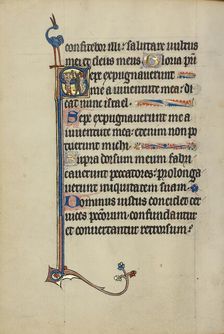 confitebor illi: salutare vultus
mei et deus meus Gloria patri
Sepe expugnaverunt
me a iuventute mea: di
cat nunc israel.
Sepe expugnaverunt me a
iuventute mea: etenim non po
tuerunt michi
Supra dorsum meum fabri
caverunt peccatores: prolonga
verunt iniquitatem suam.
Dominus iustus concidet cer
vices peccatorum: confundantur
et convertantur retrorsum: